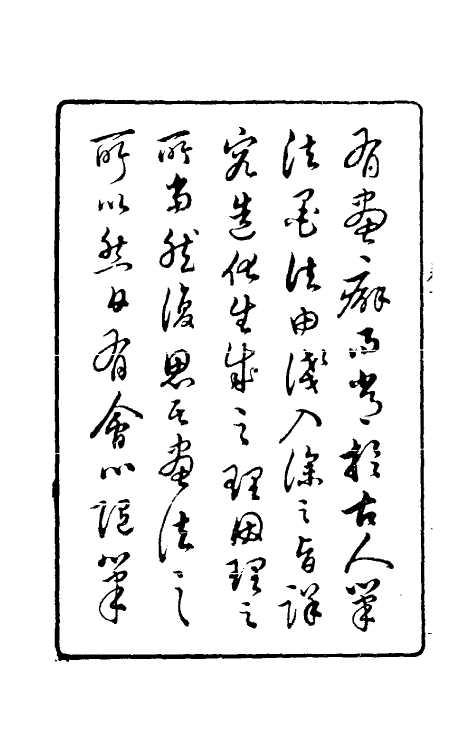 有畫癖而嘗於古人筆
法墨法由淺入深之旨詳
究造化生成之理因理之
所當然復思其畫法之
所以然日有會心隨筆